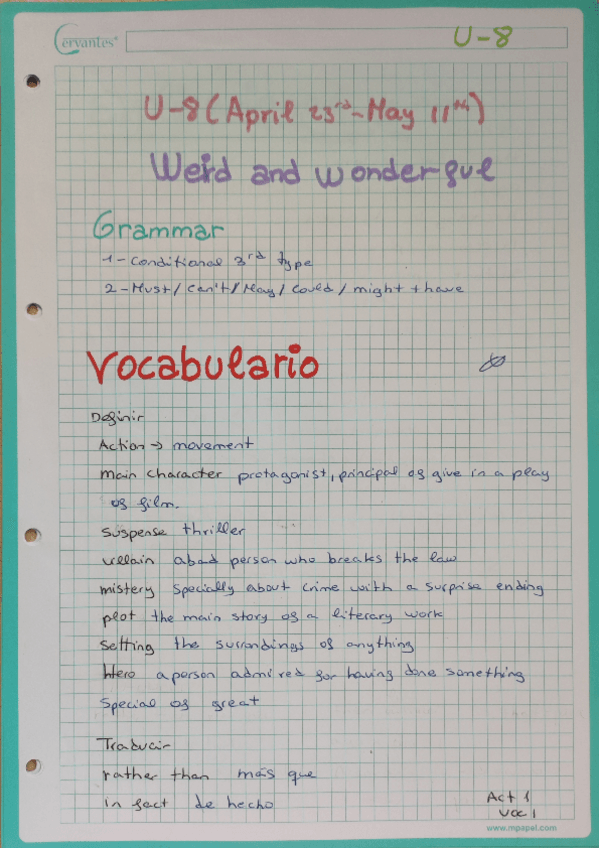 Cervantes
U-8
U-8 (April 23rd - May 11th)
Weird and wonderful
Grammar
1- Conditional 3rd type
2- Must / can't / May / could / might + have
Vocabulario
Definir
Action → movement
main character protagonist, principal of give in a play
of film.
suspense thriller
villain abad person who breaks the law
mistery specially about crime with a surprise ending
plot the main story of a literary work
setting the surrondings of anything
Hero a person admired for having done something
special of great
Traducir
rather than más que
in fact de hecho
Act 1
Voc 1
www.mpapel.com